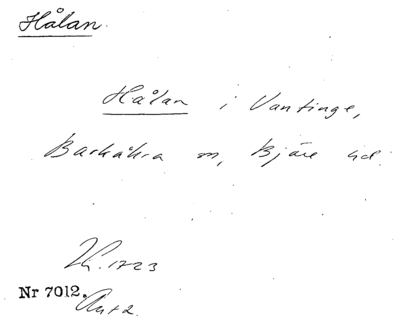 Hålan.
Hålan i Vantinge,
Barkåkra sn, Bjäre hd.
1723
Nr 7012.